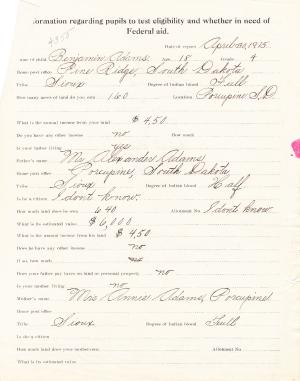 4355
Information regarding pupils to test eligibility and whether in need of
Federal aid.
Date of report April 30, 1915.
Name of child Benjamin Adams, Age 18 Grade 4
Home post office Pine Ridge, South Dakota,
Tribe Sioux Degree of Indian blood Full
How many acres of land do you own 160 Location Porcupine S.D.
What is the annual income from your land $ 4.50
Do you have any other income no How much
Is your father living yes
Father's name Mr Alexander Adams,
Home post office Porcupine, South Dakota,
Tribe Sioux Degree of Indian blood Half
Is he a citizen I don't know.
How much land does he own 640 Allotment No. I don't know
What is its estimated value $6,000
What is the annual income from his land $ 4.50
Does he have any other income no
If so, how much
Does your father pay taxes on land or personal property no
Is your mother living no
Mother's name Mrs Annie Adams, Porcupine
Home post office
Tribe Sioux Degree of Indian blood Full
Is she a citizen
How much land does your mother own Allotment No.
What is its estimated value